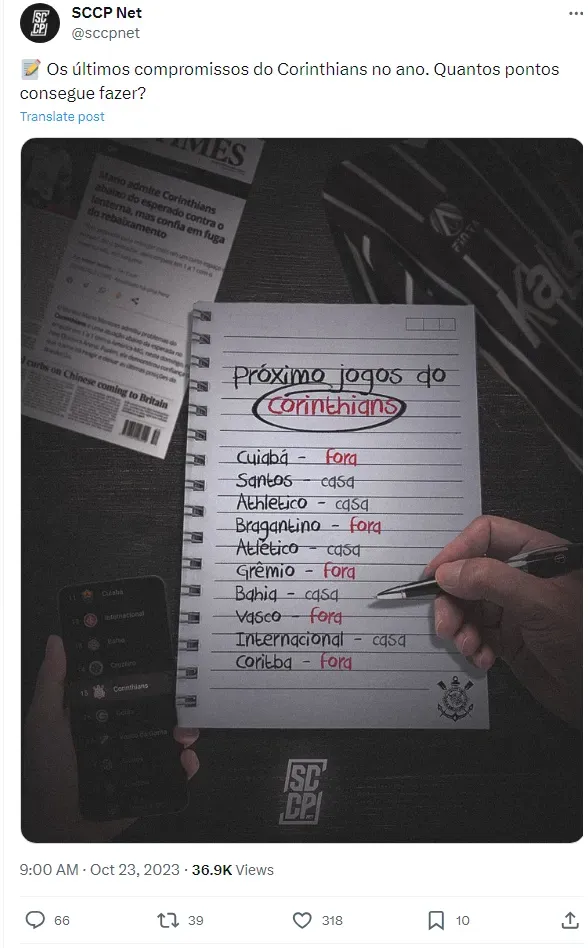 SCCP Net
@sccpnet
📝 Os últimos compromissos do Corinthians no ano. Quantos pontos
consegue fazer?
Translate post
TIMES
Mano admite Corinthians
abaixo do esperado contra o
lanterna, mas confia em fuga
do rebaixamento
curbs on Chinese coming to Britain
Próximo jogos do
Corinthians
Cuiabá - fora
Santos - casa
Athletico - casa
Bragantino - fora
Atlético - casa
Grêmio - fora
Bahia - casa
Vasco - fora
Internacional - casa
Coritba - fora
Cuiabá
Internacional
Bahia
Cruzeiro
Corinthians
Goiás
SC
CP
9:00 AM · Oct 23, 2023 · 36.9K Views
66 39 318 10